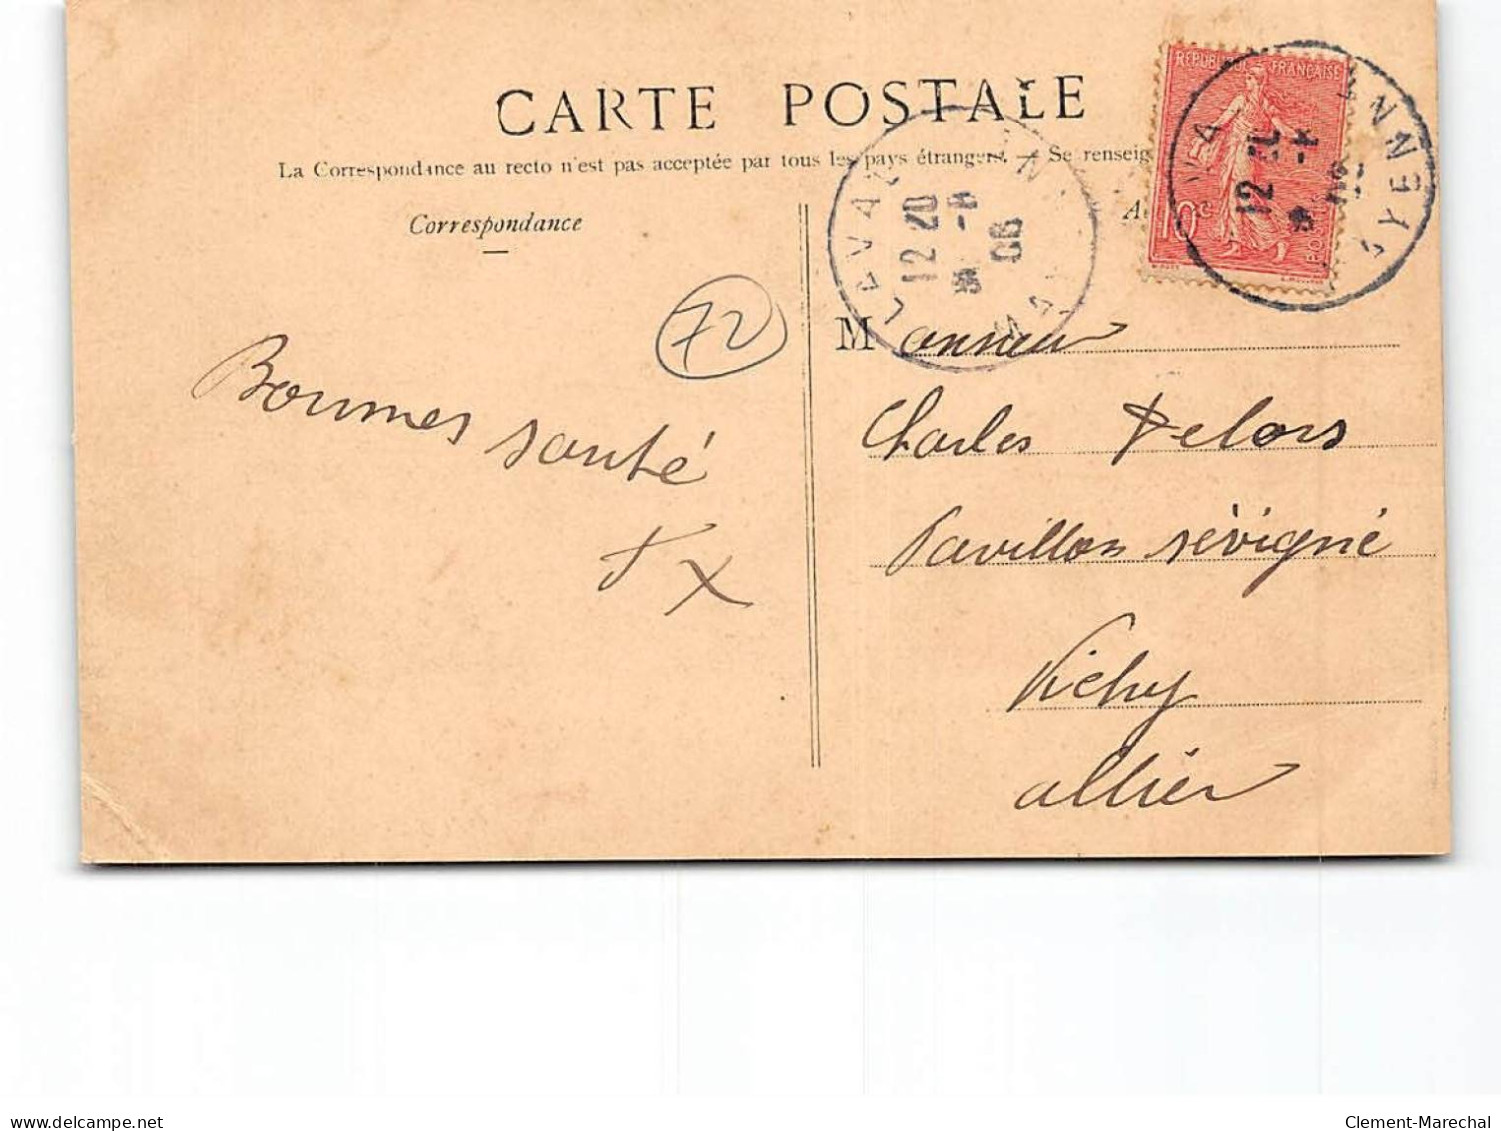 CARTE POSTALE
La Correspondance au recto n'est pas acceptée par tous les pays étrangers. — Se renseig
Correspondance
REPUBLIQUE FRANÇAISE
10 c
12 20
06
72
Monsieur
Bonnes santé
Charles Delors
Pavillon sévigné
Vichy
allier
delcampe.net
Clement-Marechal